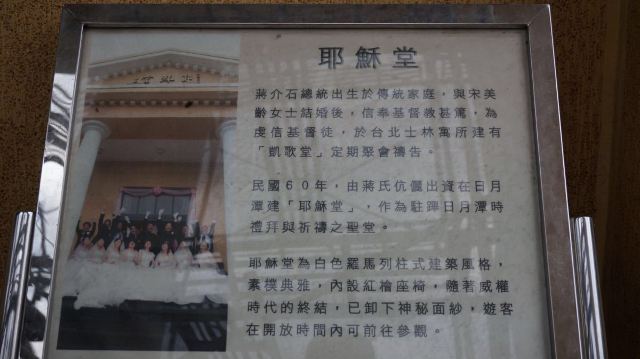 耶穌堂
蔣介石總統出生於傳統家庭，與宋美
齡女士結婚後，信奉基督教甚篤，為
虔信基督徒，於台北士林寓所建有
「凱歌堂」定期聚會禱告。
民國６０年，由蔣氏伉儷出資在日月
潭建「耶穌堂」，作為駐蹕日月潭時
禮拜與祈禱之聖堂。
耶穌堂為白色羅馬列柱式建築風格，
素樸典雅，內設紅檜座椅，隨著威權
時代的終結，已卸下神秘面紗，遊客
在開放時間內可前往參觀。